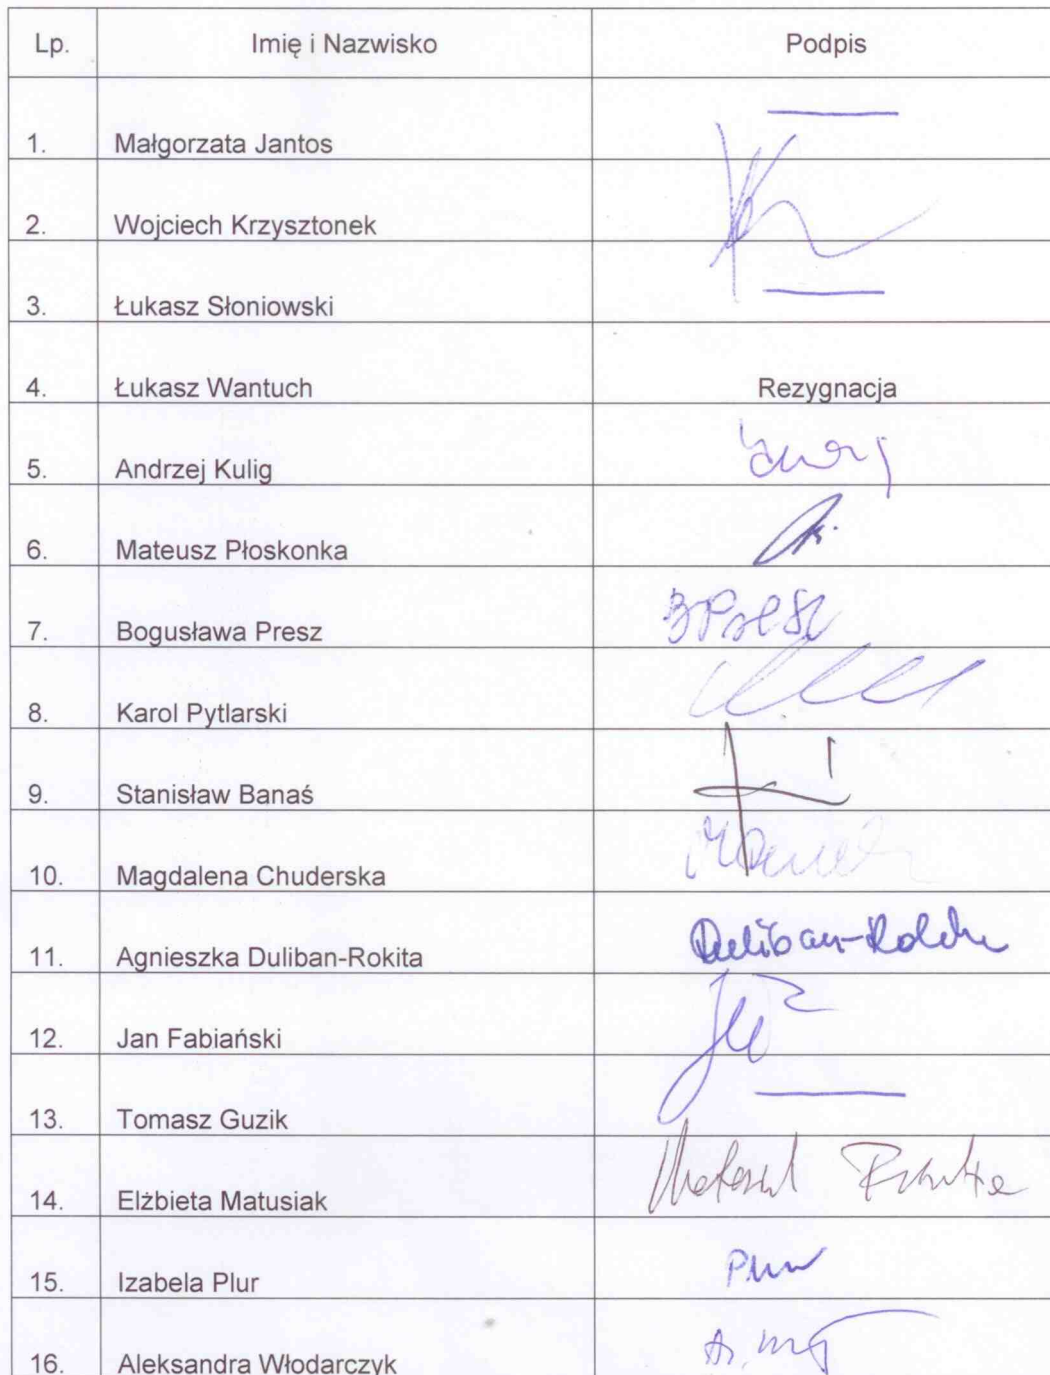 Lp. Imię i Nazwisko Podpis
1. Małgorzata Jantos
2. Wojciech Krzysztonek
3. Łukasz Słoniowski
4. Łukasz Wantuch Rezygnacja
5. Andrzej Kulig
6. Mateusz Płoskonka
7. Bogusława Presz BPresz
8. Karol Pytlarski
9. Stanisław Banaś
10. Magdalena Chuderska
11. Agnieszka Duliban-Rokita Duliban-Rokita
12. Jan Fabiański
13. Tomasz Guzik
14. Elżbieta Matusiak
15. Izabela Plur Plur
16. Aleksandra Włodarczyk